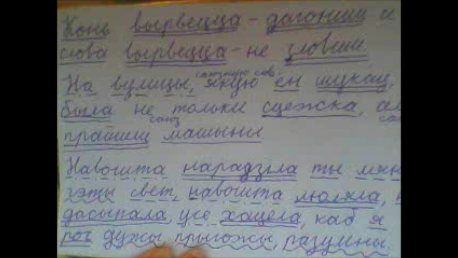 Конь вырвецца - дагоніш а
слова вырвецца - не зловіш.
На вуліцы, якую ён шукаў,
была не только сцежка, ал
союз
прайшлі машыны
Навошта нарадзіла ты мян
гэты свет, навошта люляла,
дасыпала, усе хацела, каб я
рос дужы прыгожы, разумны